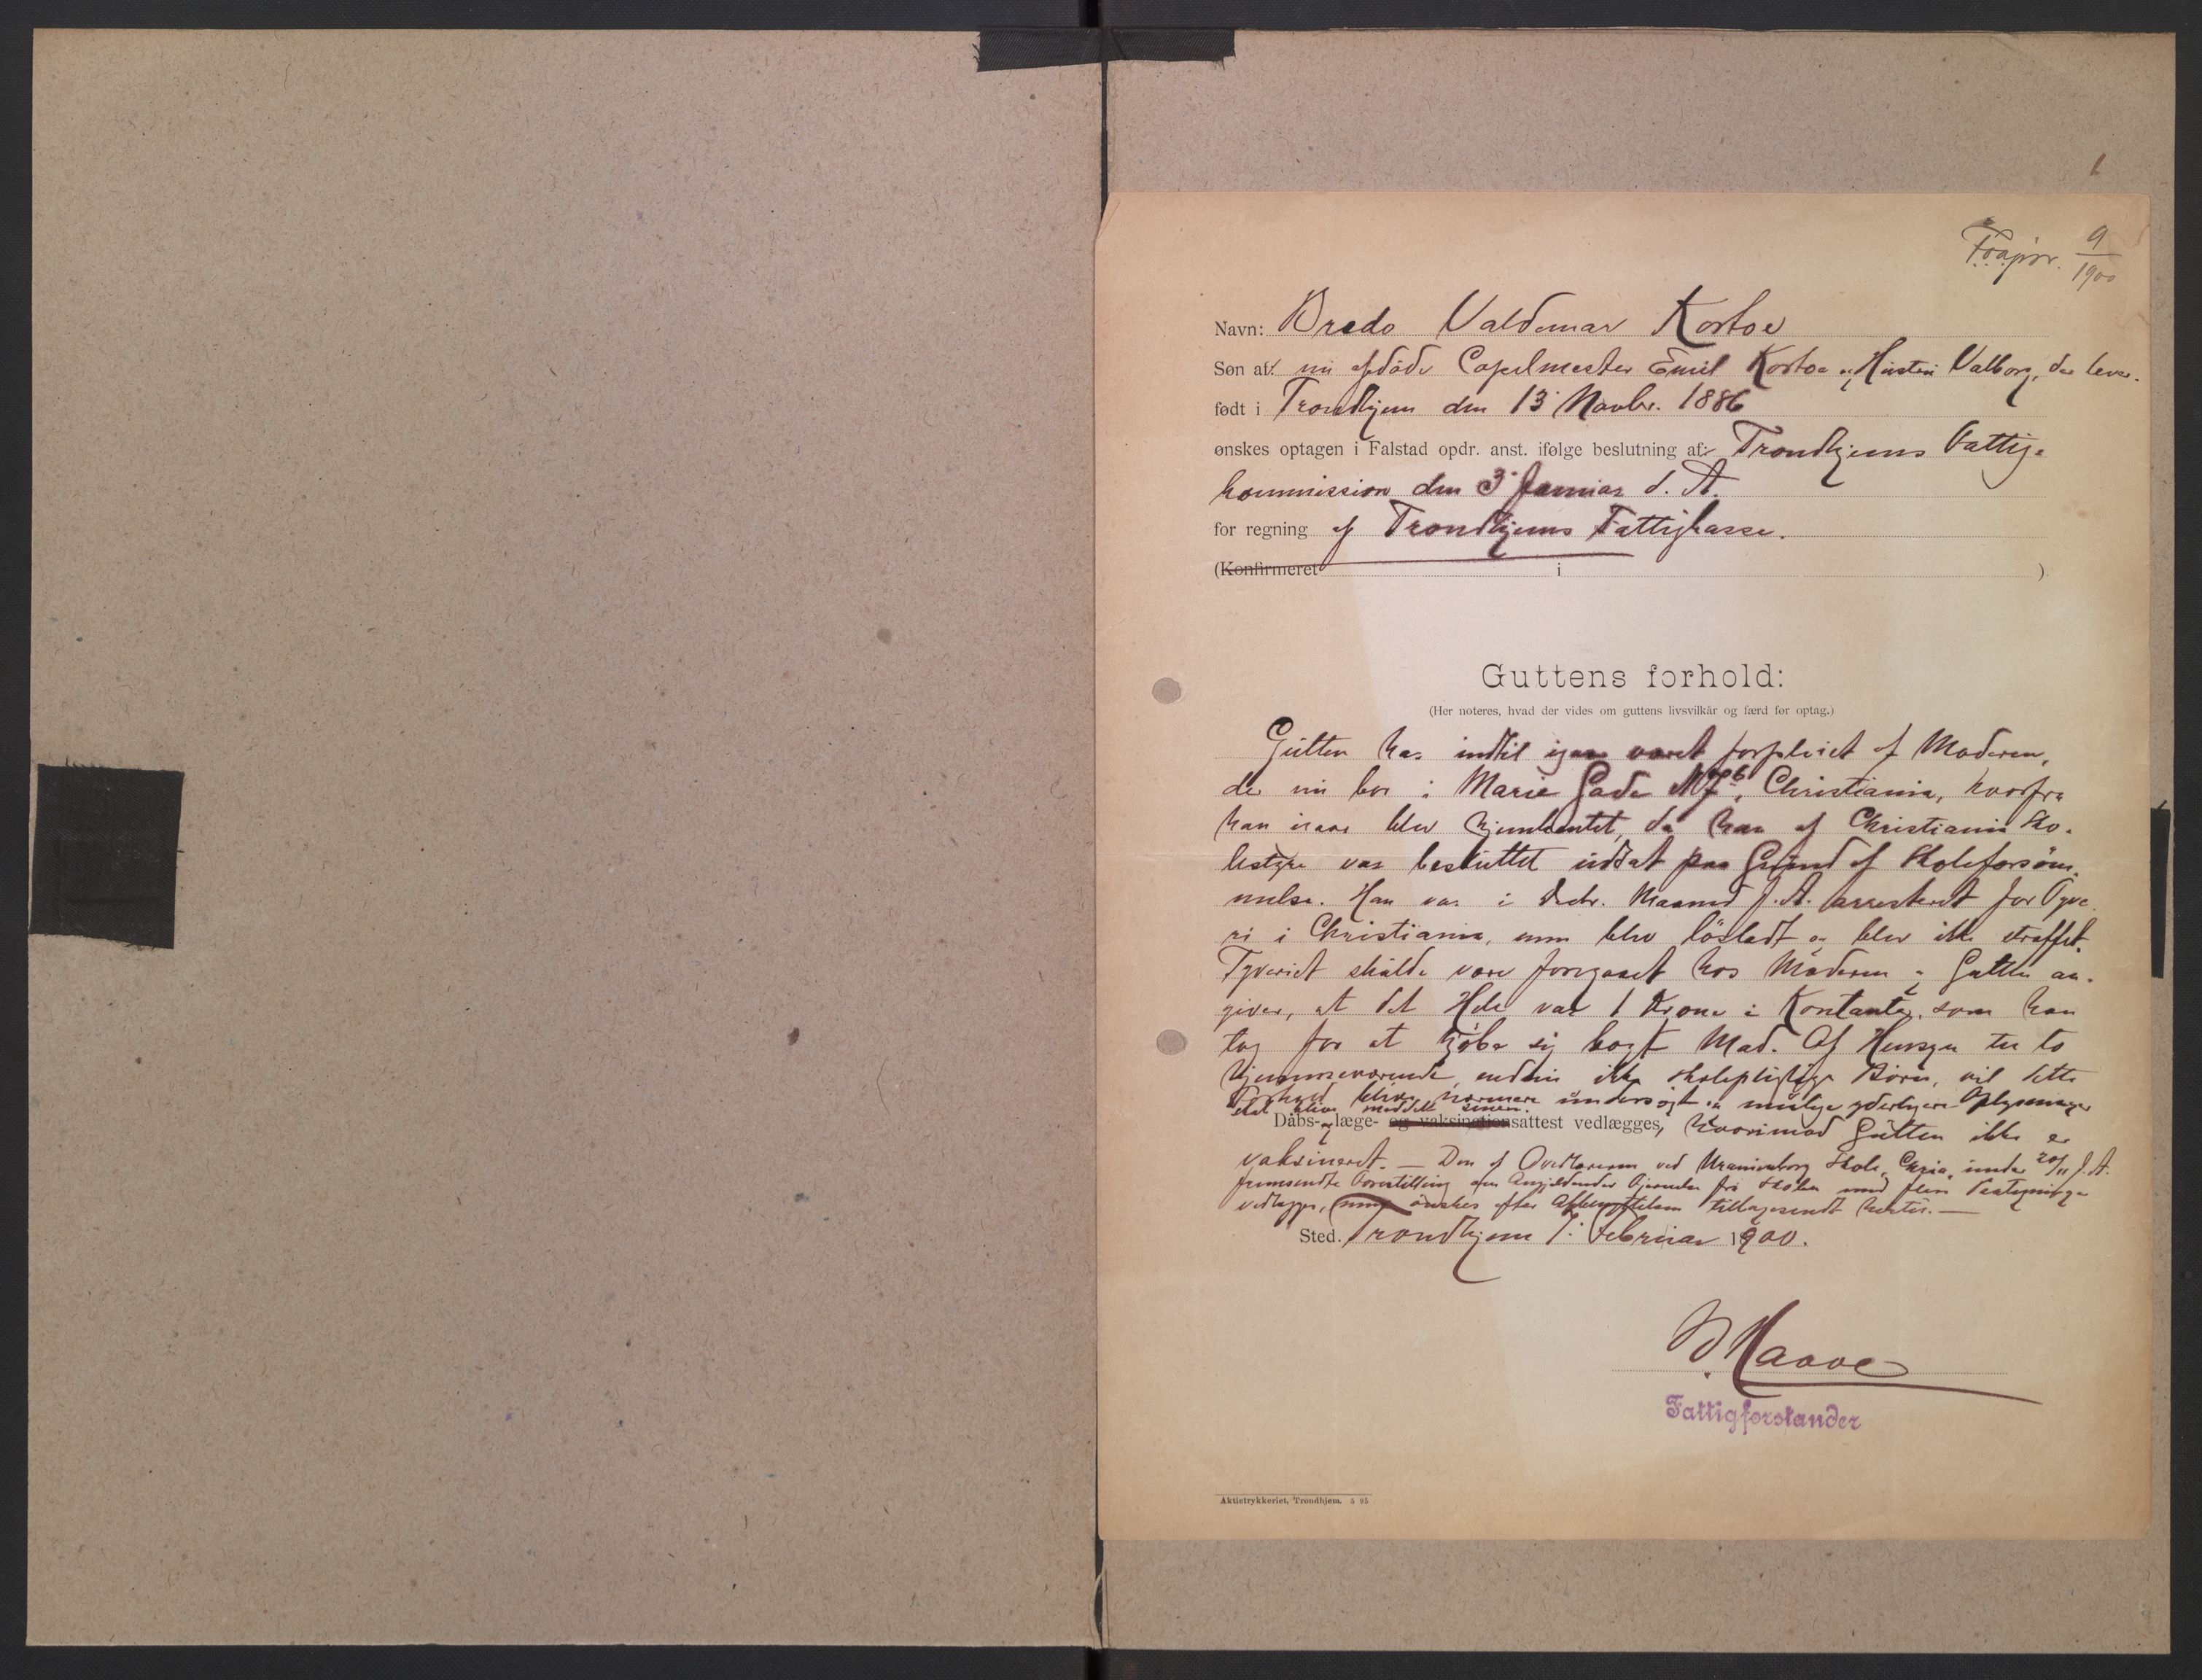 6
Frapior. 9/1900
Navn: Bredo Valdemar Kortoe
Søn af: nu afdøde Capelmester Emil Kortoe og Hustru Valborg, der lever.
født i Trondhjem den 13' Novbr. 1886
ønskes optagen i Falstad opdr. anst. ifølge beslutning af: Trondhjems Fattig-
kommission den 3' Januar d. A.
for regning af Trondhjems Fattigkasse.
(Konfirmeret i )
Guttens forhold:
(Her noteres, hvad der vides om guttens livsvilkår og færd før optag.)
Gutten har indtil igaar været forpleiet af Moderen,
der nu bor i Marie Gade Christiania, hvorfra
han igaar blev hjemhentet, da han af Christiania Sko-
lestyre var besluttet udsat paa Grund af Skoleforsøm-
melse. Han var i Decbr. Maaned f. A. arresteret for Tyve
ri i Christiania, men blev løsladt og blev ikke straffet.
Tyveriet skulde være foregaaet hos Moderen og Gutten an-
giver, at det Hele var 1 Krone i Kontanter, som han
tog for at kjøbe sig bort Mad. Af Hensyn til to
hjemmeværende, endnu ikke skolepligtige Børn, vil dette
Forhold blive nærmere undersøgt og mulige yderligere Oplysninger
skal blive meddelt senere.
Dåbs- og læge- og vaksinationsattest vedlægges, hvorimod Gutten ikke er
vaksineret. — Den af Overlæreren ved Uranienborg Skole, Chria, under 20/11 f. A.
fremsendte Forestilling om Angjældendes Fjernelse fra Skolen med flere Paategninger
vedlægges, men ønskes efter Afbenyttelsen tilbagesendt hertil. —
Sted. Trondhjem 7' Februar 1900.
Maave
Fattigforstander
Aktietrykkeriet, Trondhjem. 5 95